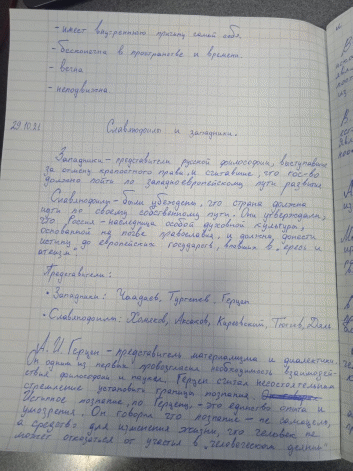 - имеет внутреннюю причину самой себя.
- бесконечна в пространстве и времени.
- вечна
- неподвижна.
29.10.21 Славянофилы и западники.
Западники - представители русской философии, выступавшие
за отмену крепостного права, и считавшие, что гос-во
должно пойти по западноевропейскому пути развития.
Славянофилы - были убеждены, что страна должна
идти по своему собственному пути. Они утверждали,
что Россия - наследница особой духовной культуры,
основанной на православии, и должна донести
истину до европейских государств, впавших в "ересь и
атеизм".
Представители:
• Западники: Чаадаев, Тургенев, Герцен.
• Славянофилы: Хомяков, Аксаков, Киреевский, Тютчев, Даль
А. И. Герцен - представитель материализма и диалектики.
Он одним из первых провозгласил необходимость взаимодей-
ствия философии и науки. Герцен считал несостоятельным
стремление установить границы познания.
Истинное познание, по Герцену, - это единство опыта и
умозрения. Он говорил что познание - не самоцель,
а средство для изменения жизни, что человек не
может отказаться от участия в "человеческом деянии"